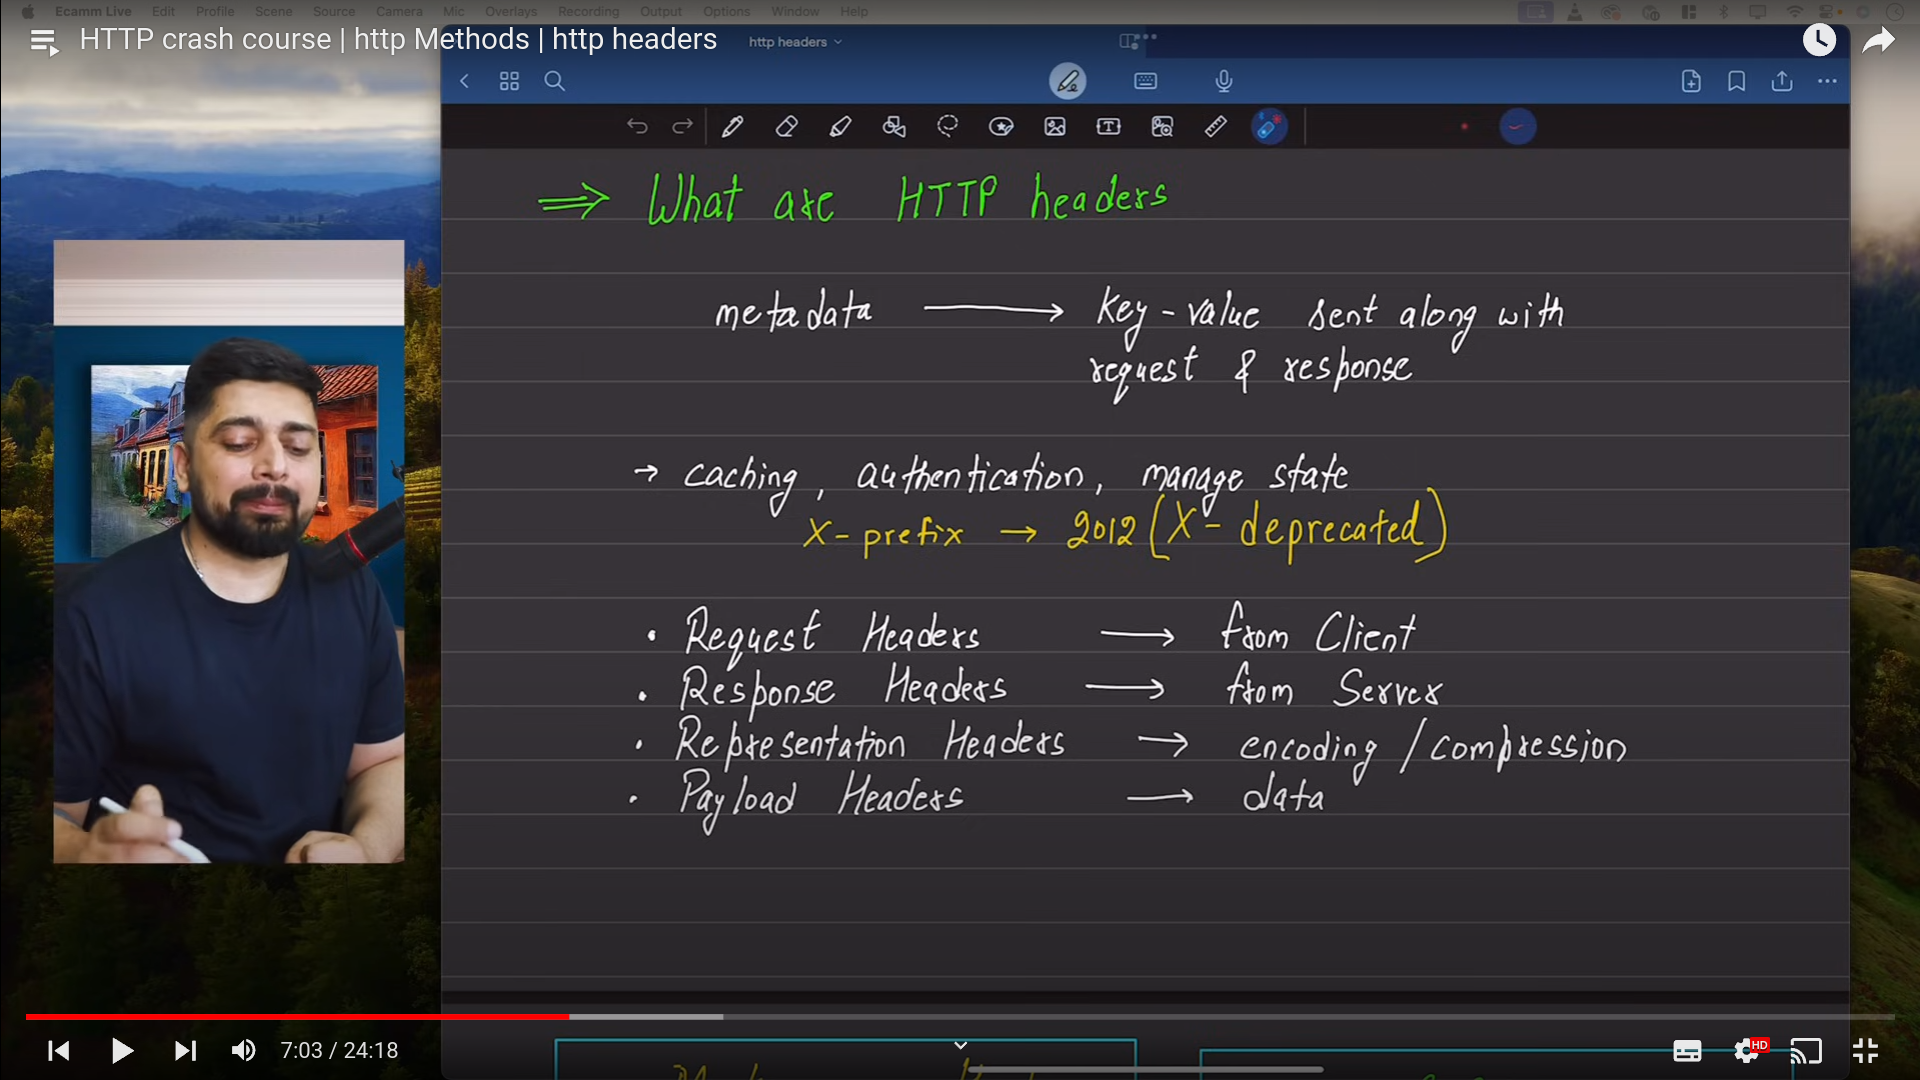 Ecamm Live Edit Profile Scene Source Camera Mic Overlays Recording Output Options Window Help
HTTP crash course | http Methods | http headers
http headers
⇒ What are HTTP headers
metadata → Key - value sent along with
request & response
→ caching, authentication, manage state
X - prefix → 2012 (X - deprecated)
• Request Headers → from Client
• Response Headers → from Server
• Representation Headers → encoding / compression
• Payload Headers → data
7:03 / 24:18
HD